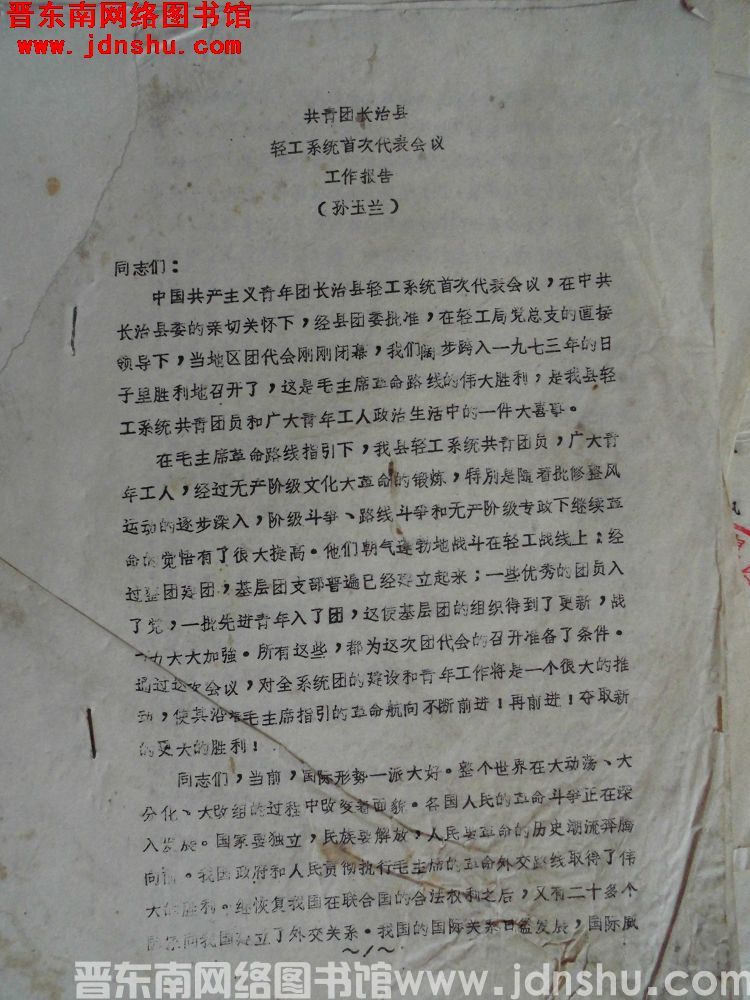 晋东南网络图书馆
www.jdnshu.com
共青团长治县
轻工系统首次代表会议
工作报告
(孙玉兰)
同志们:
中国共产主义青年团长治县轻工系统首次代表会议,在中共
长治县委的亲切关怀下,经县团委批准,在轻工局党总支的直接
领导下,当地区团代会刚刚闭幕,我们阔步跨入一九七三年的日
子里胜利地召开了,这是毛主席革命路线的伟大胜利,是我县轻
工系统共青团员和广大青年工人政治生活中的一件大喜事。
在毛主席革命路线指引下,我县轻工系统共青团员,广大青
年工人,经过无产阶级文化大革命的锻炼,特别是随着批修整风
运动的逐步深入,阶级斗争、路线斗争和无产阶级专政下继续革
命的觉悟有了很大提高。他们朝气蓬勃地战斗在轻工战线上;经
过整团建团,基层团支部普遍已经建立起来;一些优秀的团员入
了党,一批先进青年入了团,这使基层团的组织得到了更新,战
力大大加强。所有这些,都为这次团代会的召开准备了条件。
通过这次会议,对全系统团的建设和青年工作将是一个很大的推
动,使其沿着毛主席指引的革命航向不断前进!再前进!夺取新
的更大的胜利!
同志们,当前,国际形势一派大好。整个世界在大动荡、大
分化、大改组的过程中改变着面貌。各国人民的革命斗争正在深
入发展。国家要独立,民族要解放,人民要革命的历史潮流奔腾
向前。我国政府和人民贯彻执行毛主席的革命外交路线取得了伟
大的胜利。继恢复我国在联合国的合法权利之后,又有二十多个
国家同我国建立了外交关系。我国的国际关系日益发展,国际威
~1~
晋东南网络图书馆www.jdnshu.com